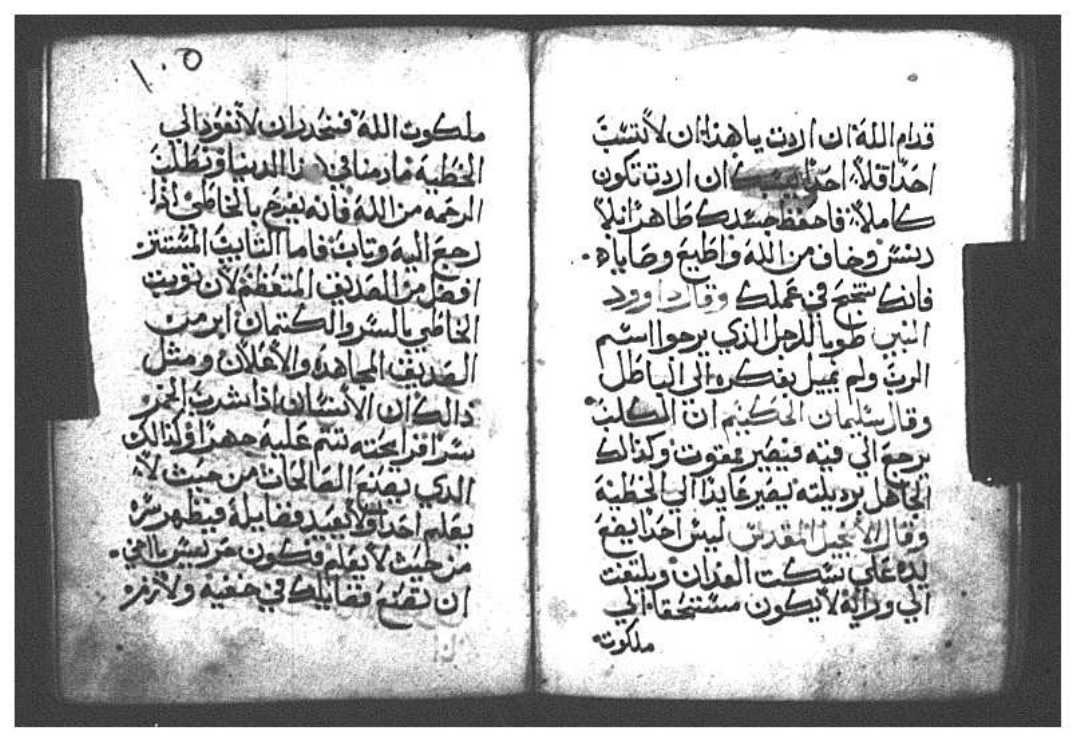 قدام الله ان اردت يا هذا ان لا تسب
احدا قلا احدا يسبك ان اردت تكون
كاملا فاحفظ جسدك طاهرا بلا
دنس وخاف من الله واطيع وصاياه
فانك تنجح في عملك وقال داوود
النبي طوبا للرجل الذي يرجوا اسم
الرب ولم يميل بفكره الي الباطل
وقال سليمان الحكيم ان الكلب
يرجع الي قيه فيصير ممقوت وكذالك
الجاهل برديلته يصير عايدا الي الخطية
وقال الانجيل المقدس ليس احدا يضع
يده علي سكت الفدان ويلتفت
الي ورايه لا يكون مستحقا الي
ملكوت
١٠٥
ملكوت الله فنحدر ان لا نعود الي
الخطية مادمنا في هذا الدنيا ونطلب
الرحمه من الله فانه يفرح بالخاطي اذا
رجع اليه وتاب فاما التايب المستتر
افضل من الصديق المتعظم لان توبت
الخاطي بالسر والكتمان ابر من
الصديق المجاهده والاعلان ومثل
ذالك ان الانسان اذا شرب الخمر
سرا فرايحته تنم عليه جهرا وكذالك
الذي يصنع الصالحات من حيث لا
يعلم احدا ولا يعيد فضايله فيظهر سره
من حيث لا يعلم فكون حريس يا اخي
ان تصنع فضايلك في خفيه ولا